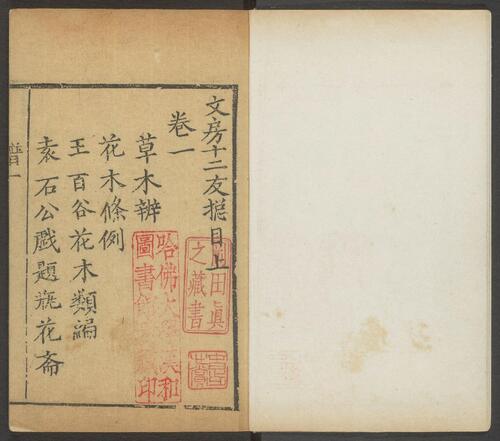 文房十二友揔目上
卷一
草木辨
花木條例
王百谷花木類編
袁石公戲題瓶花斋
哈佛大學漢和
圖書館珍藏印
田眞
之藏書